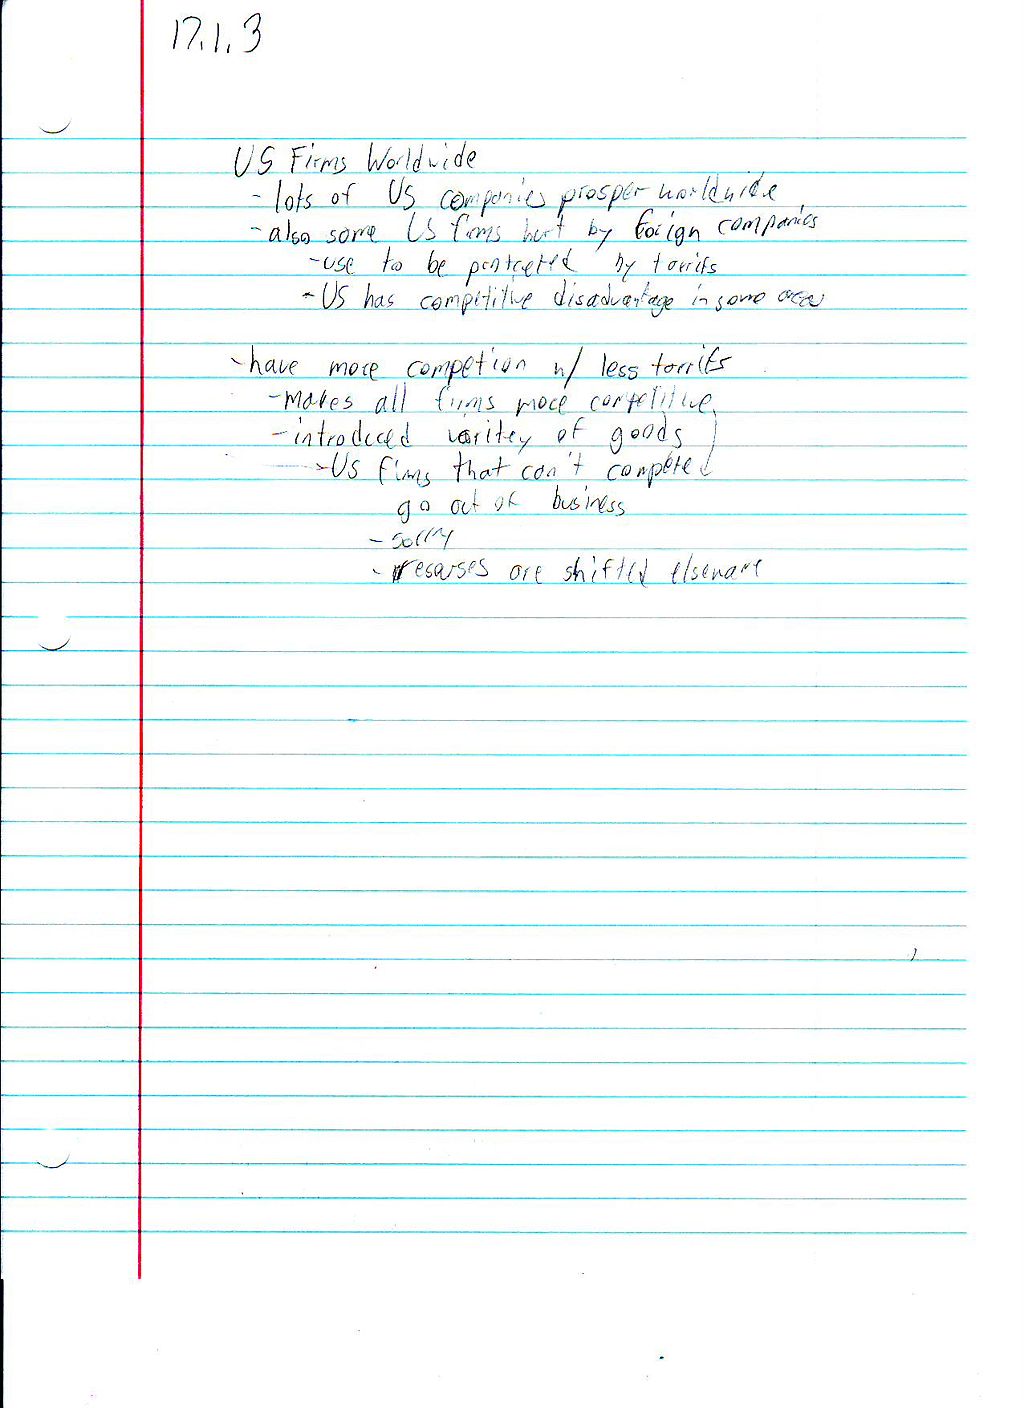 17.1.3
US Firms Worldwide
- lots of US companies prosper worldwide
- also some US firms hurt by foriegn companies
- use to be protected by torrifs
- US has competitive disadvantage in some area
- have more competion w/ less torrifs
- makes all firms more competitive
- introduced varitey of goods
- US firms that can't compete
go out of business
- sorry
- resourses are shifted elseware